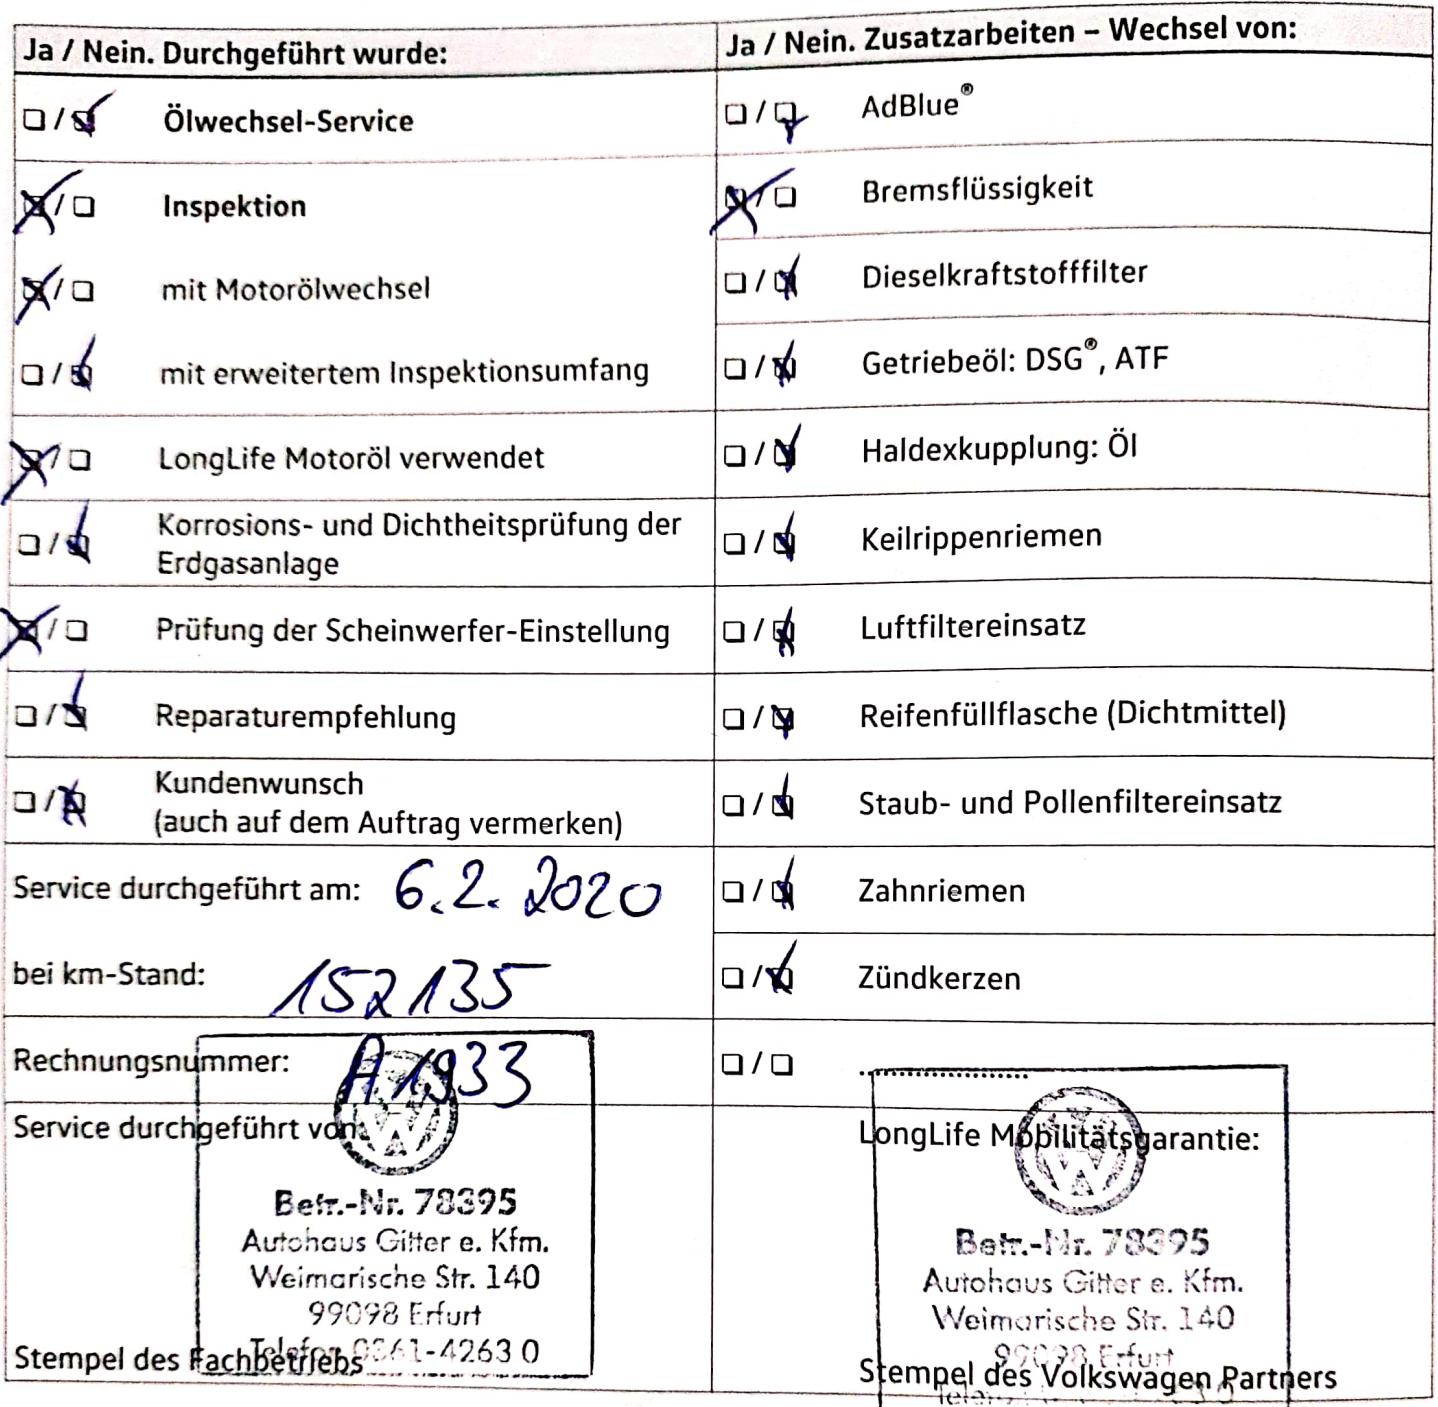 Ja / Nein. Durchgeführt wurde:
Ölwechsel-Service
Inspektion
mit Motorölwechsel
mit erweitertem Inspektionsumfang
LongLife Motoröl verwendet
Korrosions- und Dichtheitsprüfung der
Erdgasanlage
Prüfung der Scheinwerfer-Einstellung
Reparaturempfehlung
Kundenwunsch
(auch auf dem Auftrag vermerken)
Service durchgeführt am: 6.2.2020
bei km-Stand: 152135
Rechnungsnummer: A 1933
Service durchgeführt von:
Betr.-Nr. 78395
Autohaus Gitter e. Kfm.
Weimarische Str. 140
99098 Erfurt
Telefon 0361-4263 0
Stempel des Fachbetriebs
Ja / Nein. Zusatzarbeiten – Wechsel von:
AdBlue®
Bremsflüssigkeit
Dieselkraftstofffilter
Getriebeöl: DSG®, ATF
Haldexkupplung: Öl
Keilrippenriemen
Luftfiltereinsatz
Reifenfüllflasche (Dichtmittel)
Staub- und Pollenfiltereinsatz
Zahnriemen
Zündkerzen
LongLife Mobilitätsgarantie:
Betr.-Nr. 78395
Autohaus Gitter e. Kfm.
Weimarische Str. 140
99098 Erfurt
Stempel des Volkswagen Partners